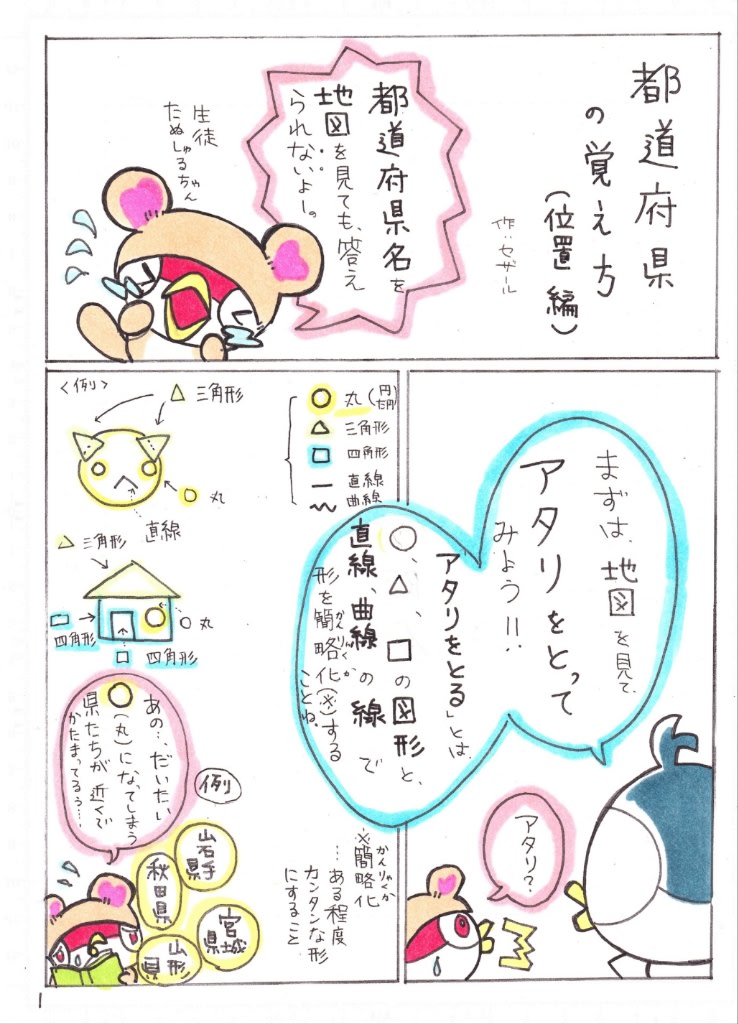 都道府県
の覚え方
(位置編)
作:セザール
都道府県名を
地図を見ても、答え
られないよー。
生徒
たぬしゅるちゃん
まずは、地図を見て、
アタリをとって
みよう!!
「アタリをとる」とは、
○、△、□の図形と、
直線、曲線の線で
形を簡略化(※)する
かんりゃくか
ことね。
アタリ?
<例>
△ 三角形
○ 丸
直線
○ 丸(円
だ円)
△ 三角形
□ 四角形
― 直線
曲線
△ 三角形
□
四角形
○ 丸
□ 四角形
あの…、だいたい
○(丸)になってしまう
県たちが近くで
かたまってるぅ…。
例
岩手
県
秋田
県
宮城
県
山形
県
※簡略化
かんりゃくか
…ある程度
カンタンな形
にすること
1